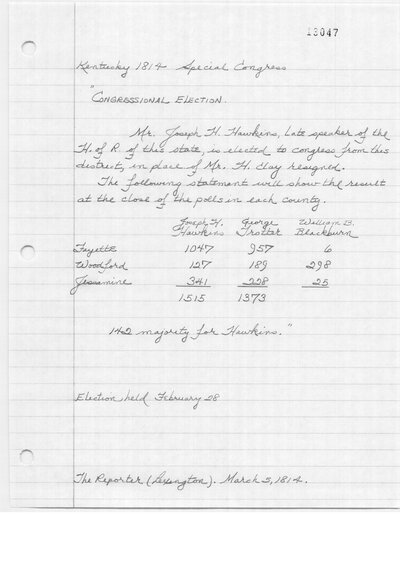 13047
Kentucky 1814 Special Congress
"CONGRESSIONAL ELECTION.
Mr. Joseph H. Hawkins, late speaker of the
H. of R. of this state, is elected to congress from this
district, in place of Mr. H. Clay resigned.
The following statement will show the result
at the close of the polls in each county.
Joseph H. George William B.
Hawkins Trotter Blackburn
Fayette 1047 957 6
Woodford 127 189 298
Jessamine 341 228 25
1515 1373
142 majority for Hawkins."
Election held February 28
The Reporter (Lexington). March 5, 1814.